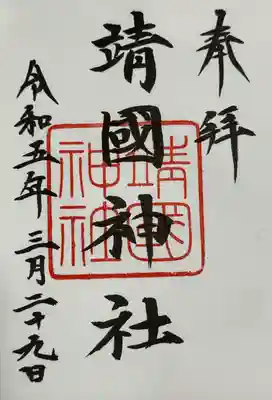 奉拝
靖國神社
靖國神社
令和五年三月二十九日